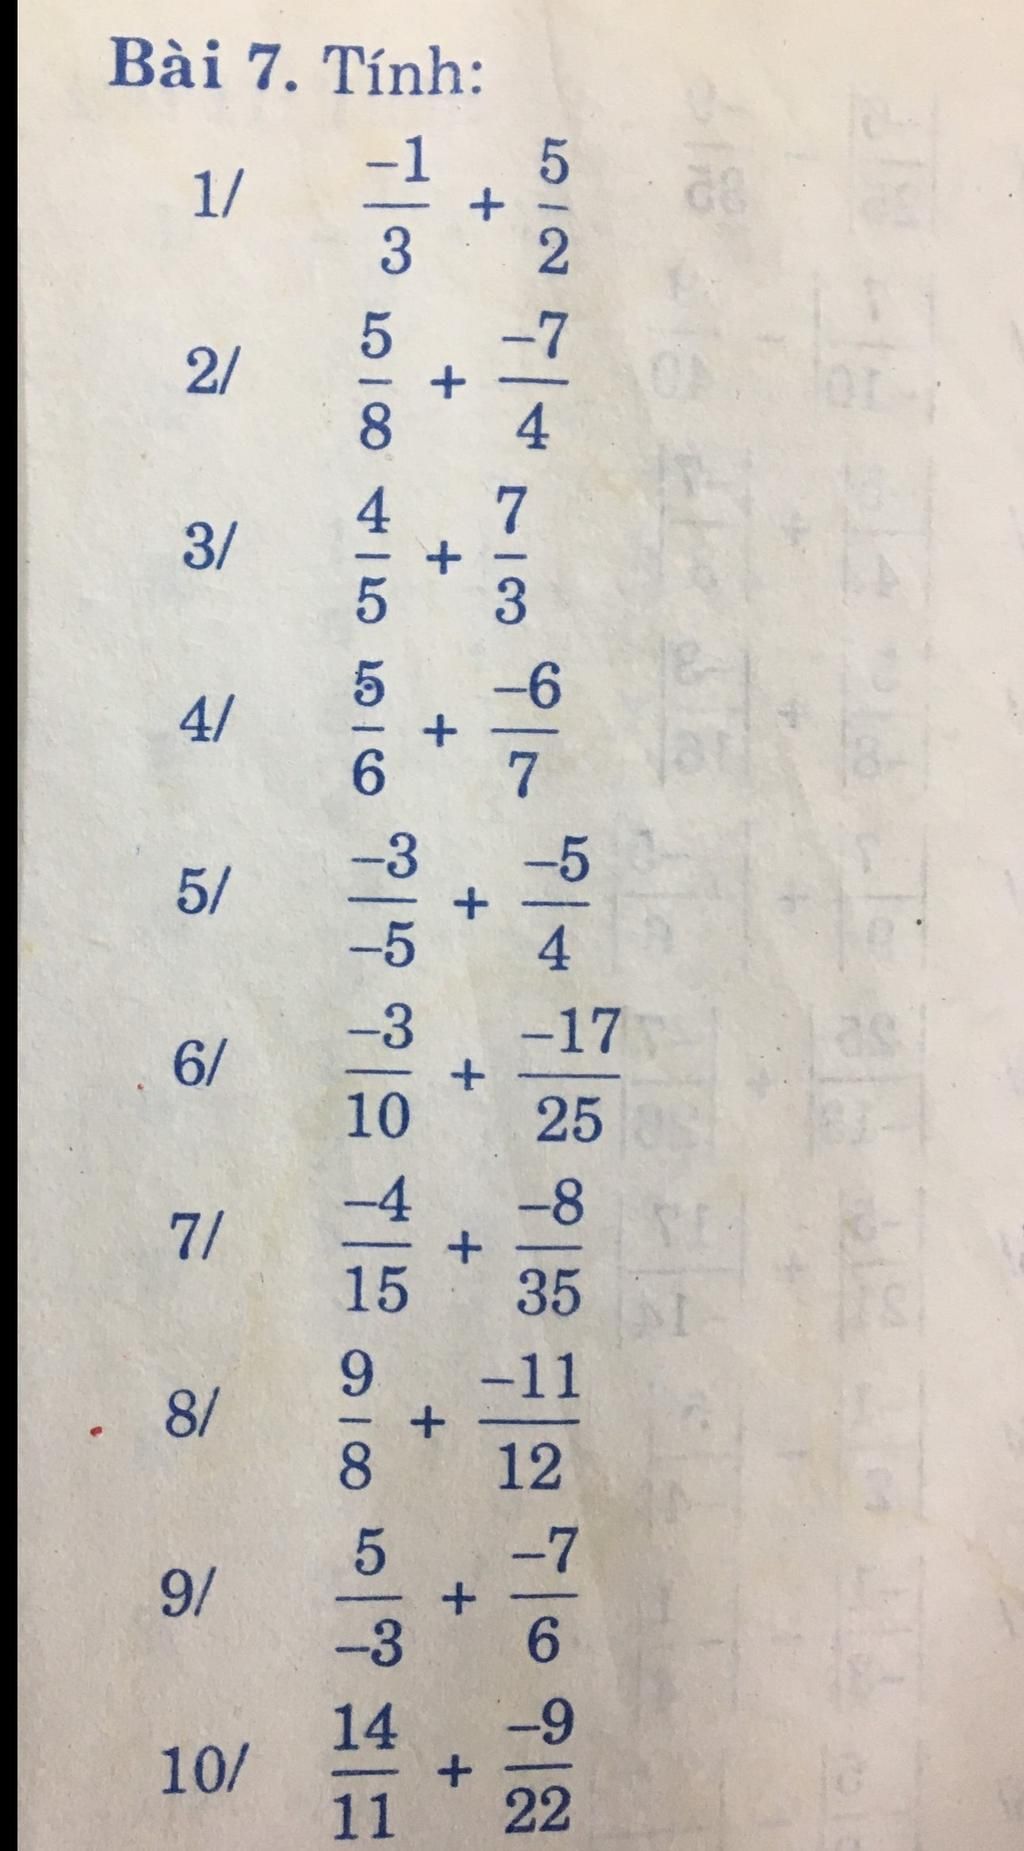 Bài 7. Tính:
1/ -1/3 + 5/2
2/ 5/8 + -7/4
3/ 4/5 + 7/3
4/ 5/6 + -6/7
5/ -3/-5 + -5/4
6/ -3/10 + -17/25
7/ -4/15 + -8/35
8/ 9/8 + -11/12
9/ 5/-3 + -7/6
10/ 14/11 + -9/22